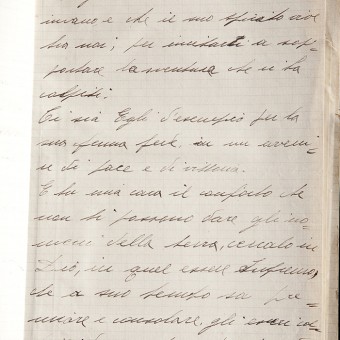 invano e che il suo spirito vive
tra noi; per incitarti a sop-
portare la sventura che vi ha
colpiti.
Ti sia Egli d'esempio per la
sua ferma fede, in un avveni-
re di pace e di vittoria.
E tu mia cara il conforto che
non ti possono dare gli uo-
mini della terra, cercalo in
Dio, in quel essere Supremo,
che a suo tempo sa pre-
miare e consolare, gli esseri